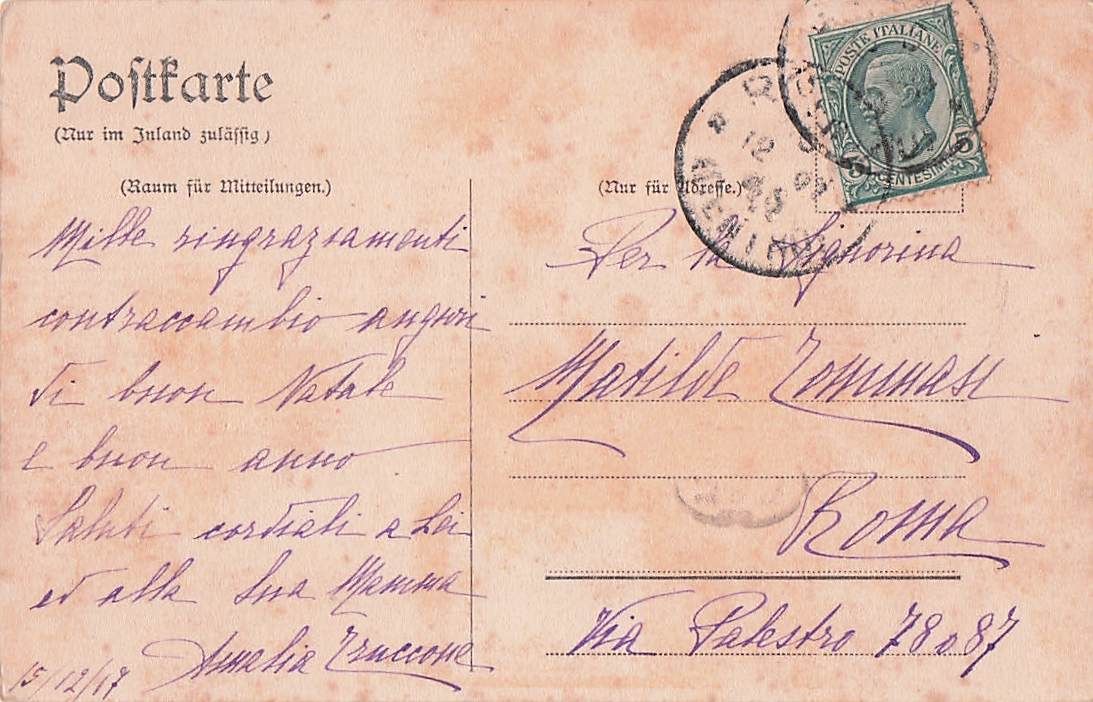 Postkarte
(Nur im Inland zulässig)
(Raum für Mitteilungen.)
Mille ringraziamenti
contraccambio auguri
di buon Natale
e buon anno
Saluti cordiali a Lei
ed alla Sua Mamma
Amalia Truccone
15/12/17
POSTE ITALIANE
5 CENTESIMI 5
(Nur für Adresse.)
Per la Signorina
Matilde Tommasi
Roma
Via Palestro 78 o 87